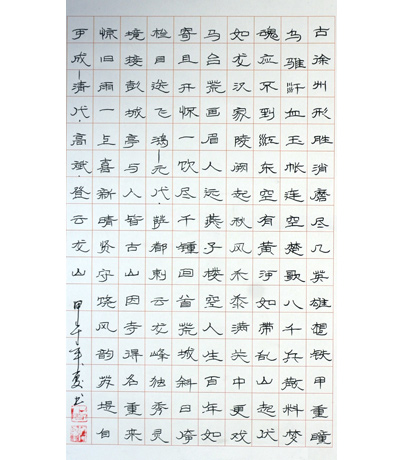 古徐州形胜消磨尽几英雄想铁甲重瞳
乌骓汗血玉帐连空楚歌八千兵散料梦
魂应不到江东空有黄河如带乱山起伏
如龙汉家陵阙起秋风禾黍满关中更戏
马台荒画眉人远燕子楼空人生百年如
寄且开怀一饮尽千锺回首荒城斜日倚
栏目送飞鸿—元代·萨都剌云龙峰独秀灵
境接彭城亭与人皆古山因亭得名重来
惊旧雨一上喜新晴贤守饶风韵苏堤自
手成—清代·高斌·登云龙山
甲午年夏书